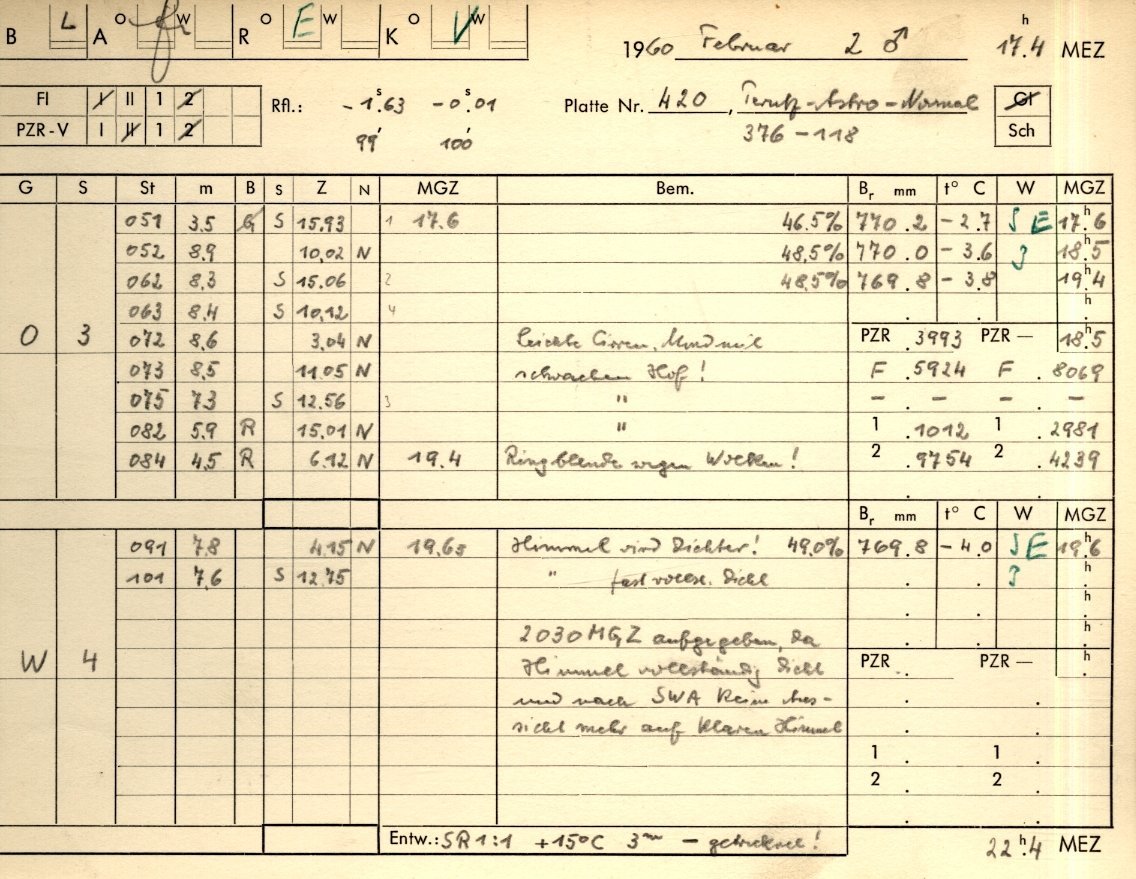 B L A O W R O E W K O V W
1960 Februar 2 ♂ 17.4 h MEZ
FI I II 1 2
PZR-V I II 1 2
Rfl.: -1.63 s -0.01 s
99' 100'
Platte Nr. 420, Perutz-Astro-Normal
376-118
Gl
Sch
G S St m B S Z N MGZ Bem. Br mm t° C W MGZ
051 3.5 G S 15.93 1 17.6 46.5% 770.2 -2.7 S E 17.6 h
052 8.9 10.02 N 48,5% 770.0 -3.6 3 18.5 h
062 8,3 S 15.06 2 48,5% 769.8 -3.8 19.4 h
063 8,4 S 10,12 4 . h
O 3 072 8,6 3,04 N Leichte Cirren, Mond mit PZR .3993 PZR — 18.5 h
073 8,5 11.05 N schwachem Hof! F .5924 F .8069
075 7.3 S 12.56 3 " - . - - . -
082 5.9 B R 15.01 N " 1 .1012 1 .2981
084 4,5 R 6.12 N 19.4 Ringblende wegen Wolken! 2 .9754 2 .4239
Br mm t° C W MGZ
091 7.8 4.15 N 19.65 Himmel wird dichter! 49.0% 769.8 -4.0 S E 19.6 h
101 7,6 S 12.75 " fast vollst. dicht 3 . h
2030 MGZ aufgegeben, da
W 4 Himmel vollständig dicht PZR . PZR — . h
und nach SWA keine Aus-
sicht mehr auf klaren Himmel
1 . 1 .
2 . 2 .
Entw.: SR 1:1 +15°C 3 m - getrocknet!
22.4 h MEZ